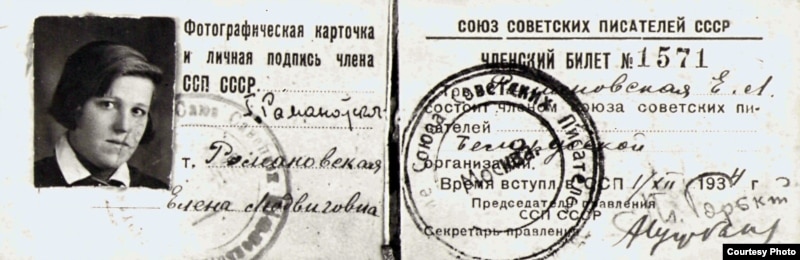 Фотографическая карточка
и личная подпись члена
ССП СССР.
т. Романовская
Елена Людвиговна
СОЮЗ СОВЕТСКИХ ПИСАТЕЛЕЙ СССР
ЧЛЕНСКИЙ БИЛЕТ № 1571
Романовская Е. Л.
состоит членом союза советских пи-
сателей
Белорусской
организации.
Время вступл. в ССП 1/XII 1934
Председатель правления
ССП СССР
М. Горький
Секретарь правления
Союза Советских Писателей
Москва
Courtesy Photo